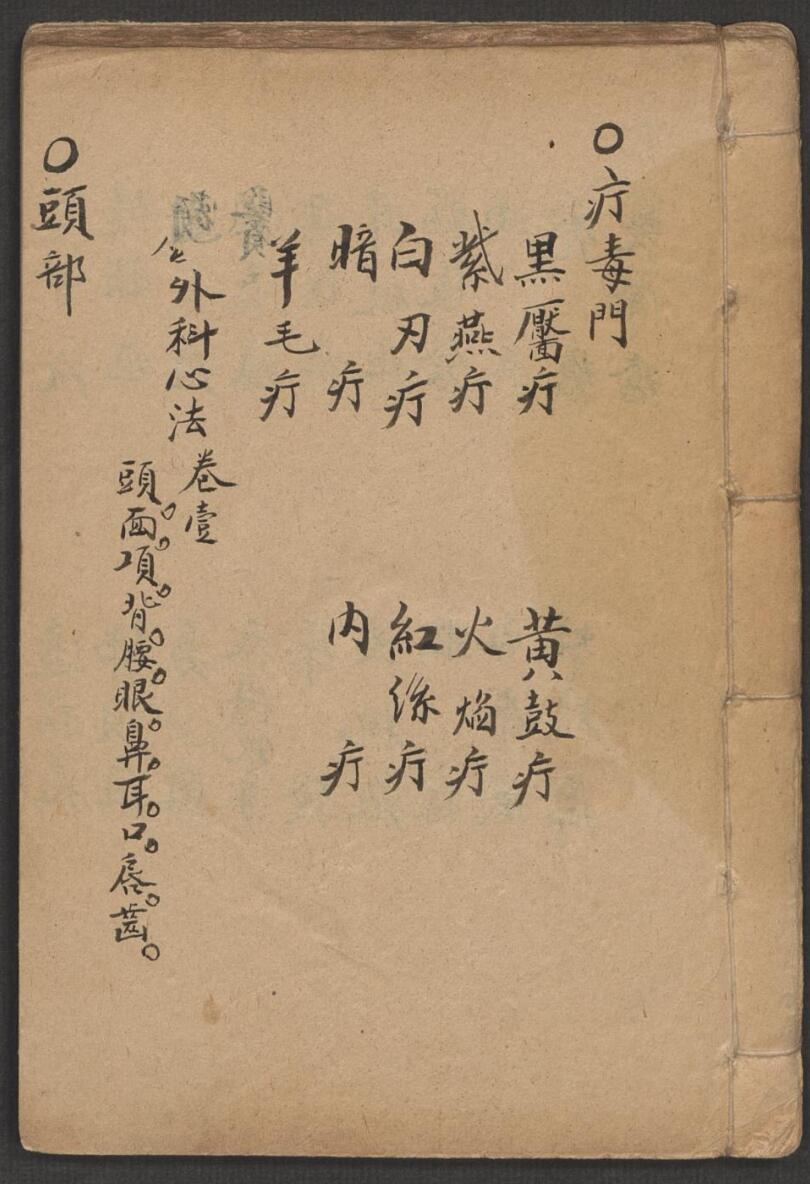 ○疔毒門
黒靨疔　黄鼓疔
紫燕疔　火焰疔
白刃疔　紅絲疔
暗疔　内疔
羊毛疔
外科心法卷壹
頭。面。項。背。腰。眼。鼻。耳。口。唇。齒。
○頭部